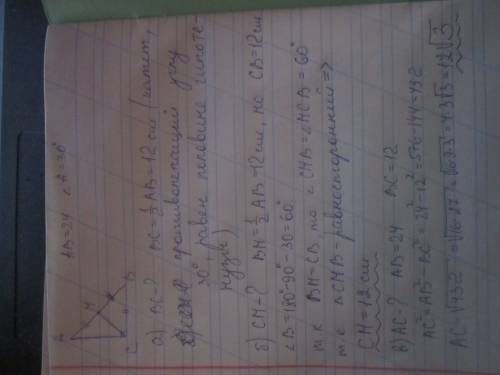 A
M
B
C
AB=24 ∠A=30°
a) BC-? BC=½AB=12 см (катет,
противолежащий углу
30°, равен половине гипоте-
нузы)
б) CM-? BM=½AB=12 см, но CB=12 см
∠B=180°-90°-30=60°
т.к BM=CB, то ∠CMB=∠MCB=60°
т.е. ΔCMB-равносторонний=>
CM=12 см
в) AC-? AB=24 BC=12
AC²=AB²-BC²=24²-12²=576-144=432
AC=√432=√16·27=√16·9·3=4·3√3=12√3